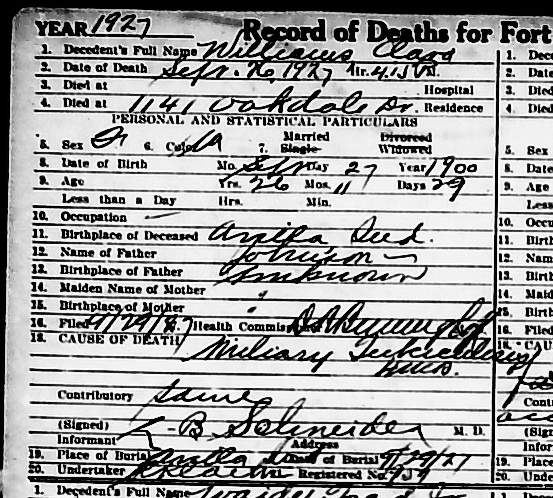 YEAR 1927 Record of Deaths for Fort
1. Decedent's Full Name Williams Clara
2. Date of Death Sept. 26, 1927 Hr.
3. Died at Hospital
4. Died at 1141 Oakdale Dr. Residence
PERSONAL AND STATISTICAL PARTICULARS
5. Sex F 6. Color W 7. Married Single Divorced Widowed
8. Date of Birth Mo. Sept Day 27 Year 1900
9. Age Yrs. 26 Mos. 11 Days 29
Less than a Day Hrs. Min.
10. Occupation —
11. Birthplace of Deceased Avilla Ind.
12. Name of Father Johnson
13. Birthplace of Father Unknown
14. Maiden Name of Mother "
15. Birthplace of Mother "
16. Filed 9/29/27 Health Commissioner
18. CAUSE OF DEATH Miliary Tuberculosis
Contributory same
(Signed) L-B Schneider M. D.
Informant Address
19. Place of Burial Avilla Date of Burial 9/29/27
20. Undertaker Registered No. 979
1. Decedent's Full Name